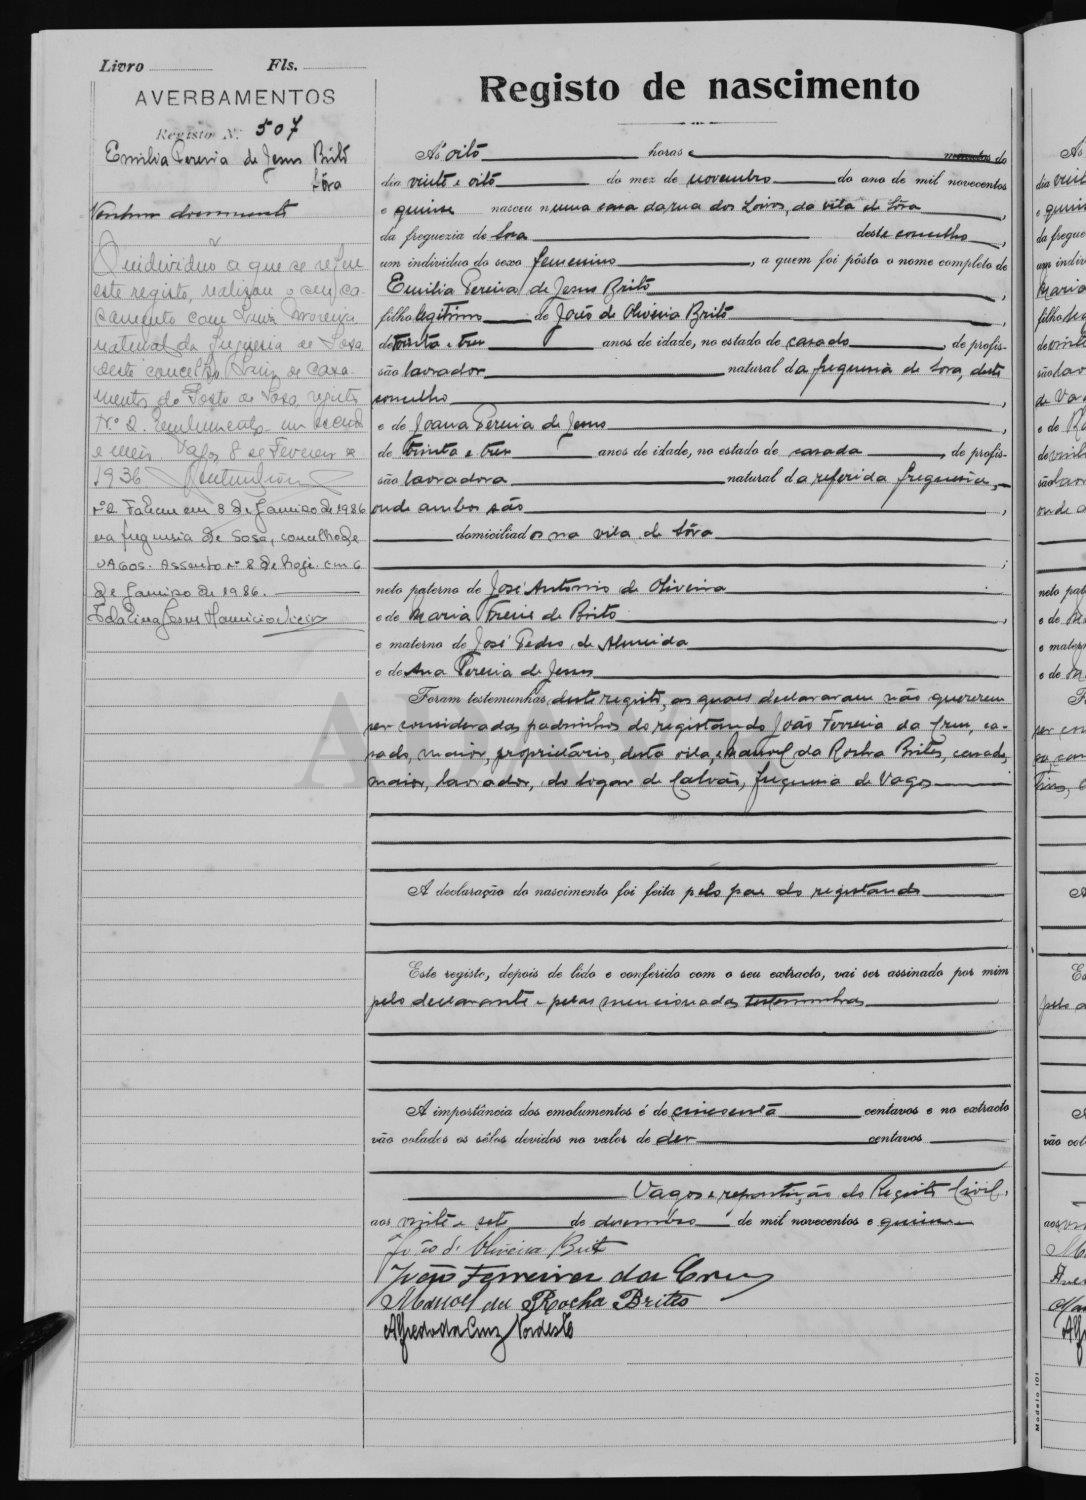 Livro Fls.
AVERBAMENTOS
Registo N.º 507
Emilia Pereira de Jesus Britô
Sôza
Nenhum documento
O individuo a que se refere
este registo, realizou o seu ca-
samento com Luiz Moreira
natural da freguesia de Sosa
deste concelho, de casa-
mentos do Posto de Sosa, registo
N.º 2. Emolumentos um escudo
e meio. Vagos 8 de Fevereiro de
1936
nº 2 Faleceu em 8 de Janeiro de 1986
na freguesia de Sosa, concelho de
Vagos. Assento nº 8 de hoje. em 6
de Janeiro de 1986.
Registo de nascimento
Ás oitó horas e minutos do
dia vinte e oitó do mez de novembro do ano de mil novecentos
e quinse nasceu n uma casa da rua dos Loiros, da vila de Sôza,
da freguezia de Soza deste concelho,
um individuo do sexo femenino, a quem foi pôsto o nome completo de
Emilia Pereira de Jesus Britó,
filho legitimo de João de Oliveira Britó,
de trinta e tres anos de idade, no estado de casado, de profis-
são lavrador natural da freguesia de Soza, deste
concelho,
e de Joana Pereira de Jesus
de trinta e tres anos de idade, no estado de casada, de profis-
são lavradora natural da referida freguesia,
onde ambos são,
domiciliados na vila de Sôza
neto paterno de José Antonio de Oliveira
e de Maria Freire de Brito,
e materno de José Pedro de Almeida
e de Ana Pereira de Jesus
Foram testemunhas deste registo, as quaes declararam não quererem
ser consideradas padrinhos do registando João Ferreira da Cruz, ca-
sado, maior, proprietário, desta vila, e Manoel da Rocha Brites, casado,
maior, lavrador, do logar de Calvão, freguesia de Vagos
A declaração do nascimento foi feita pelo pae do registando
Este registo, depois de lido e conferido com o seu extracto, vai ser assinado por mim
pelo declarante e pelas mencionadas testemunhas
A importância dos emolumentos é de cincoenta centavos e no extracto
vão colados os sêlos devidos no valor de dez centavos
Vagos e repartição do Registo Civil,
aos vinte e sete de dezembro de mil novecentos e quinse
João d' Oliveira Brito
João Ferreira da Cruz
Manoel da Rocha Brites
Alfredo da Cruz Nordeste
Modelo 101